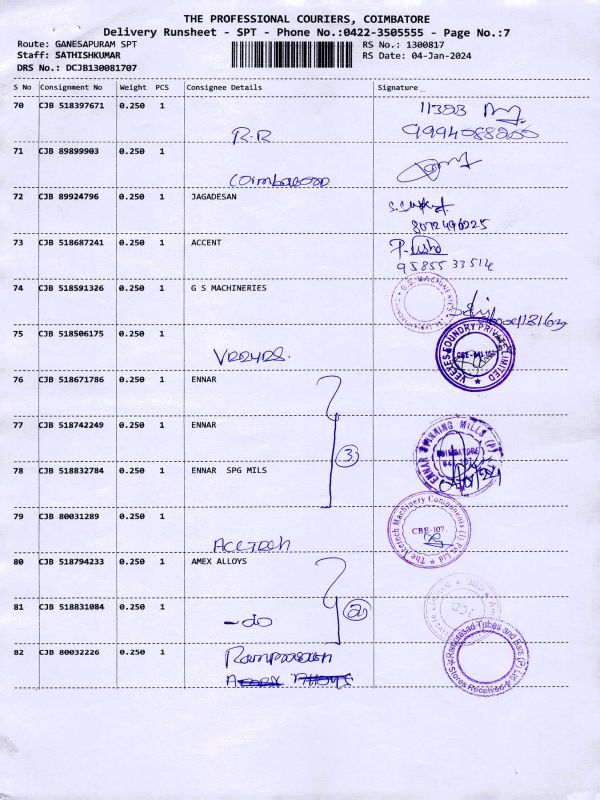 THE PROFESSIONAL COURIERS, COIMBATORE
Delivery Runsheet - SPT - Phone No.:0422-3505555 - Page No.:7
Route: GANESAPURAM SPT
RS No.: 1300817
Staff: SATHISHKUMAR
RS Date: 04-Jan-2024
DRS No.: DCJB130081707
S No Consignment No Weight PCS Consignee Details Signature
70 CJB 518397671 0.250 1
R.R
9994088200
71 CJB 89899903 0.250 1
72 CJB 89924796 0.250 1 JAGADESAN
8072496225
73 CJB 518687241 0.250 1 ACCENT
P. Usha
9585533514
74 CJB 518591326 0.250 1 G S MACHINERIES
75 CJB 518506175 0.250 1
VEEYES FOUNDRY PRIVATE LIMITED
76 CJB 518671786 0.250 1 ENNAR
77 CJB 518742249 0.250 1 ENNAR
3
ENNAR SPINNING MILLS (P)
COIMBATORE
78 CJB 518832784 0.250 1 ENNAR SPG MILS
79 CJB 80031289 0.250 1
Acetech
The Acetech Machinery Components (I) Pvt Ltd
CBE-107
80 CJB 518794233 0.250 1 AMEX ALLOYS
81 CJB 518831084 0.250 1
-do
2
82 CJB 80032226 0.250 1
Ramprasad Tubes and Bars (P) Ltd
Stores Received